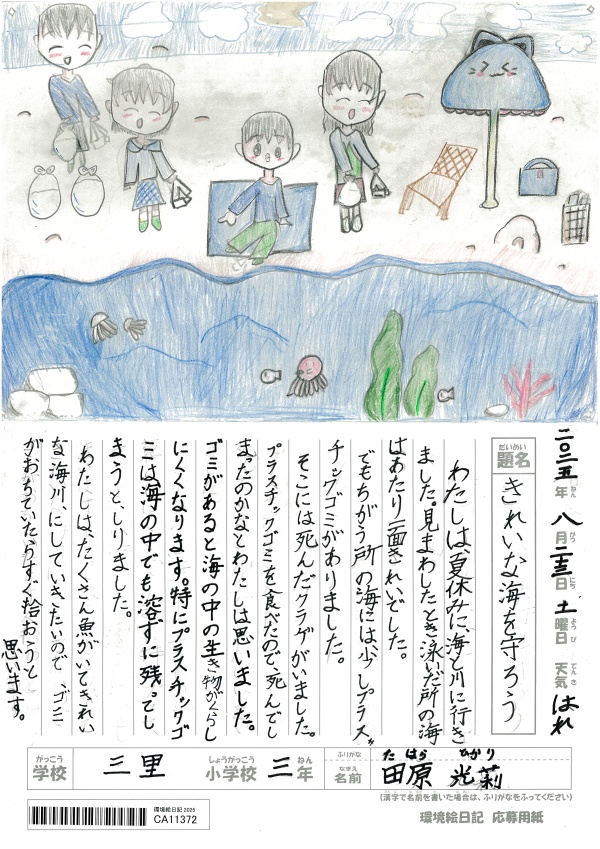 二〇二五年八月二三日土曜日 天気はれ
ねん
がつ
にち
ようび
てんき
だいめい
題名
きれいな海を守ろう
わたしは、夏休みに、海と川に行き
ました。見まわしたとき泳いだ所の海
はあたり一面きれいでした。
でもちがう所の海には、少しプラス
チックゴミがありました。
そこには死んだクラゲがいました。
プラスチックゴミを食べたので、死んでし
まったのかなとわたしは思いました。
ゴミがあると海の中の生き物がくらし
にくくなります。特にプラスチックゴ
ミは海の中でも溶ずに残。てし
まうと、しりました。
わたしは、たくさん魚がいてきれい
な海川、にしていきたいので、ゴミ
がおちていたらすぐ拾おうと
思います。
がっこう
学校
三里
しょうがっこう
小学校
三
ねん
年
ふりがな
たはら ひかり
なまえ
名前
田原 光莉
(漢字で名前を書いた場合は、ふりがなをふってください)
環境絵日記 2025
CA11372
環境絵日記 応募用紙